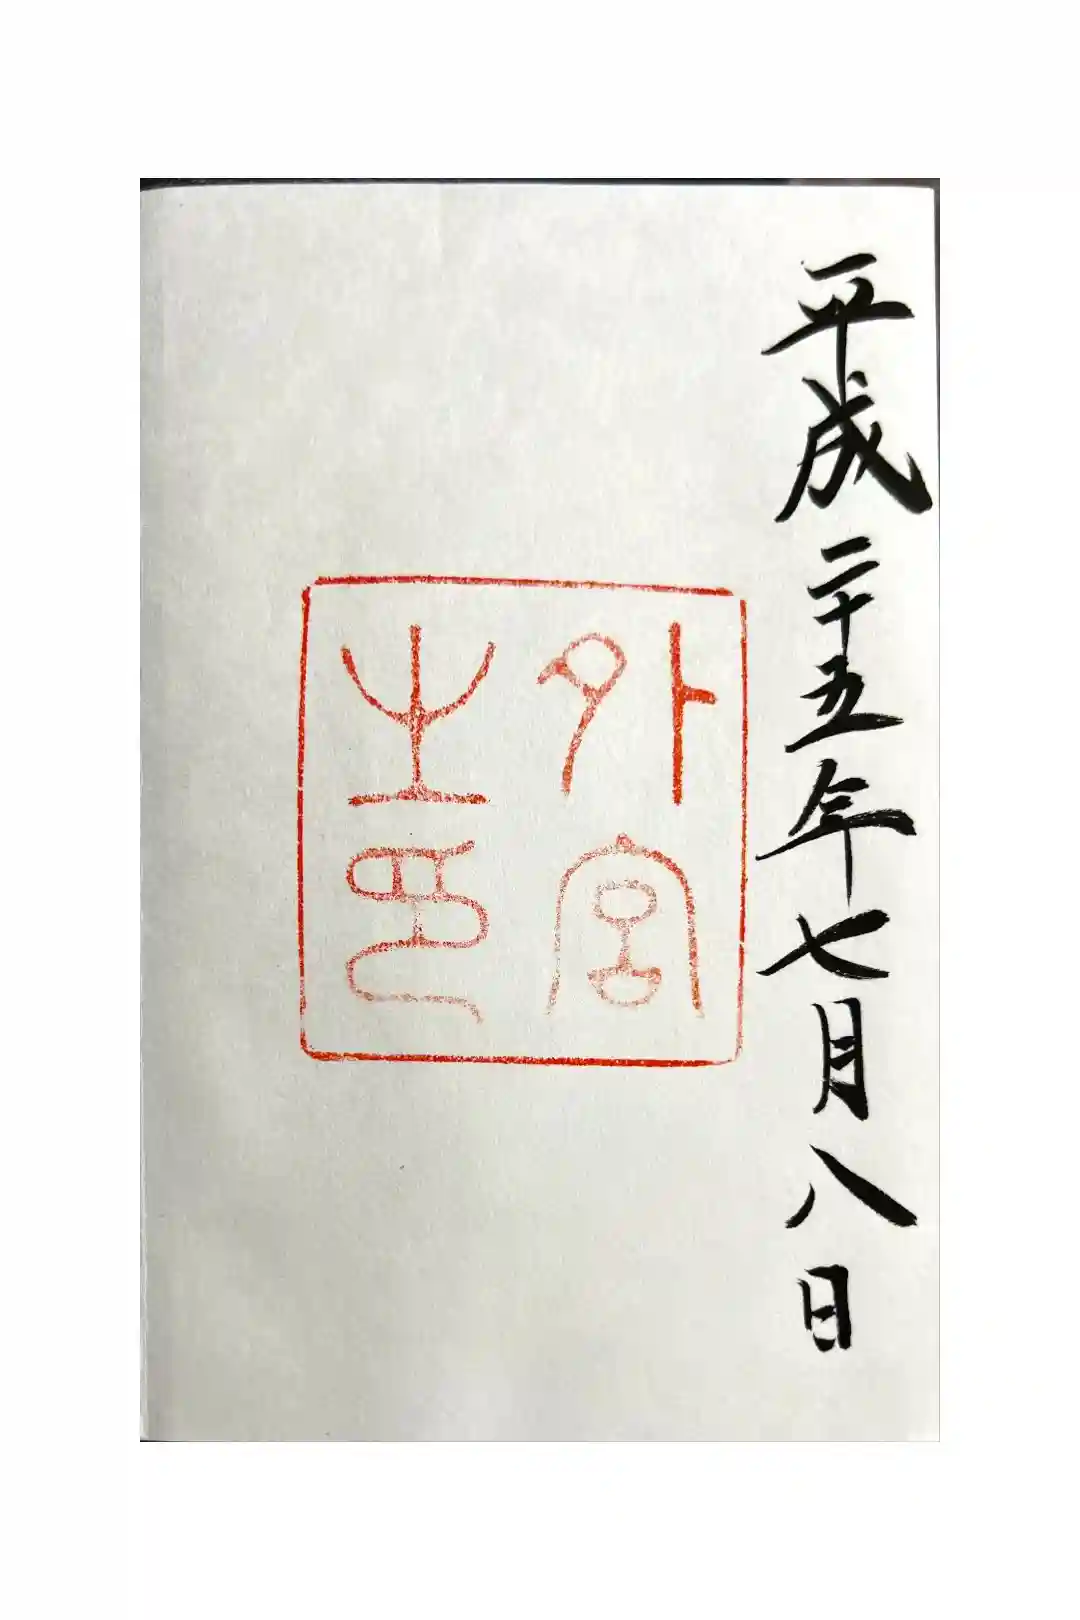 平成二十五年七月八日
外宮
之印